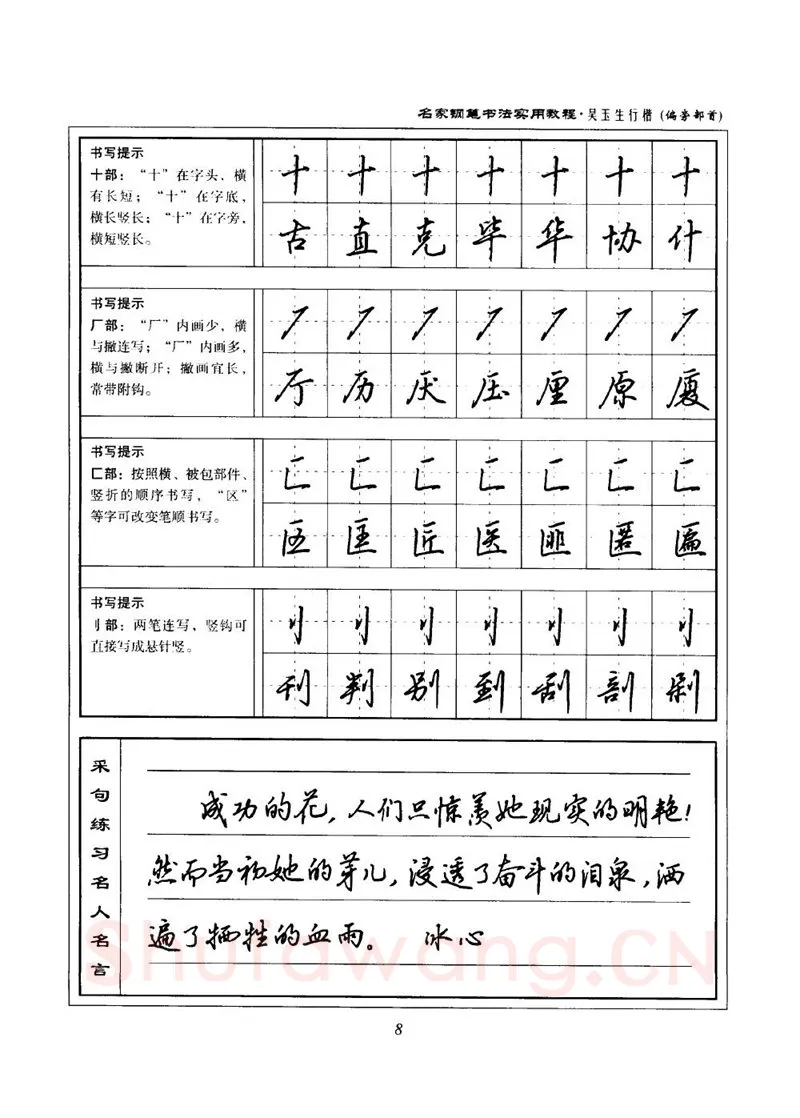 名家钢笔书法实用教程·吴玉生行楷(偏旁部首)
书写提示
十部：“十”在字头，横
有长短；“十”在字底，
横长竖长；“十”在字旁，
横短竖长。
十 十 十 十 十 十 十
古 直 克 毕 华 协 什
书写提示
厂部：“厂”内画少，横
与撇连写；“厂”内画多，
横与撇断开；撇画宜长，
常带附钩。
厂 厂 厂 厂 厂 厂 厂
厅 历 厌 压 厘 原 厦
书写提示
匚部：按照横、被包部件、
竖折的顺序书写，“区”
等字可改变笔顺书写。
匚 匚 匚 匚 匚 匚 匚
匹 匡 匠 医 匪 匿 匾
书写提示
刂部：两笔连写，竖钩可
直接写成悬针竖。
刂 刂 刂 刂 刂 刂 刂
刊 判 别 到 刮 剖 剁
采句练习名人名言
成功的花，人们只惊羡她现实的明艳！
然而当初她的芽儿，浸透了奋斗的泪泉，洒
遍了牺牲的血雨。 冰心
Shufawang.CN
8